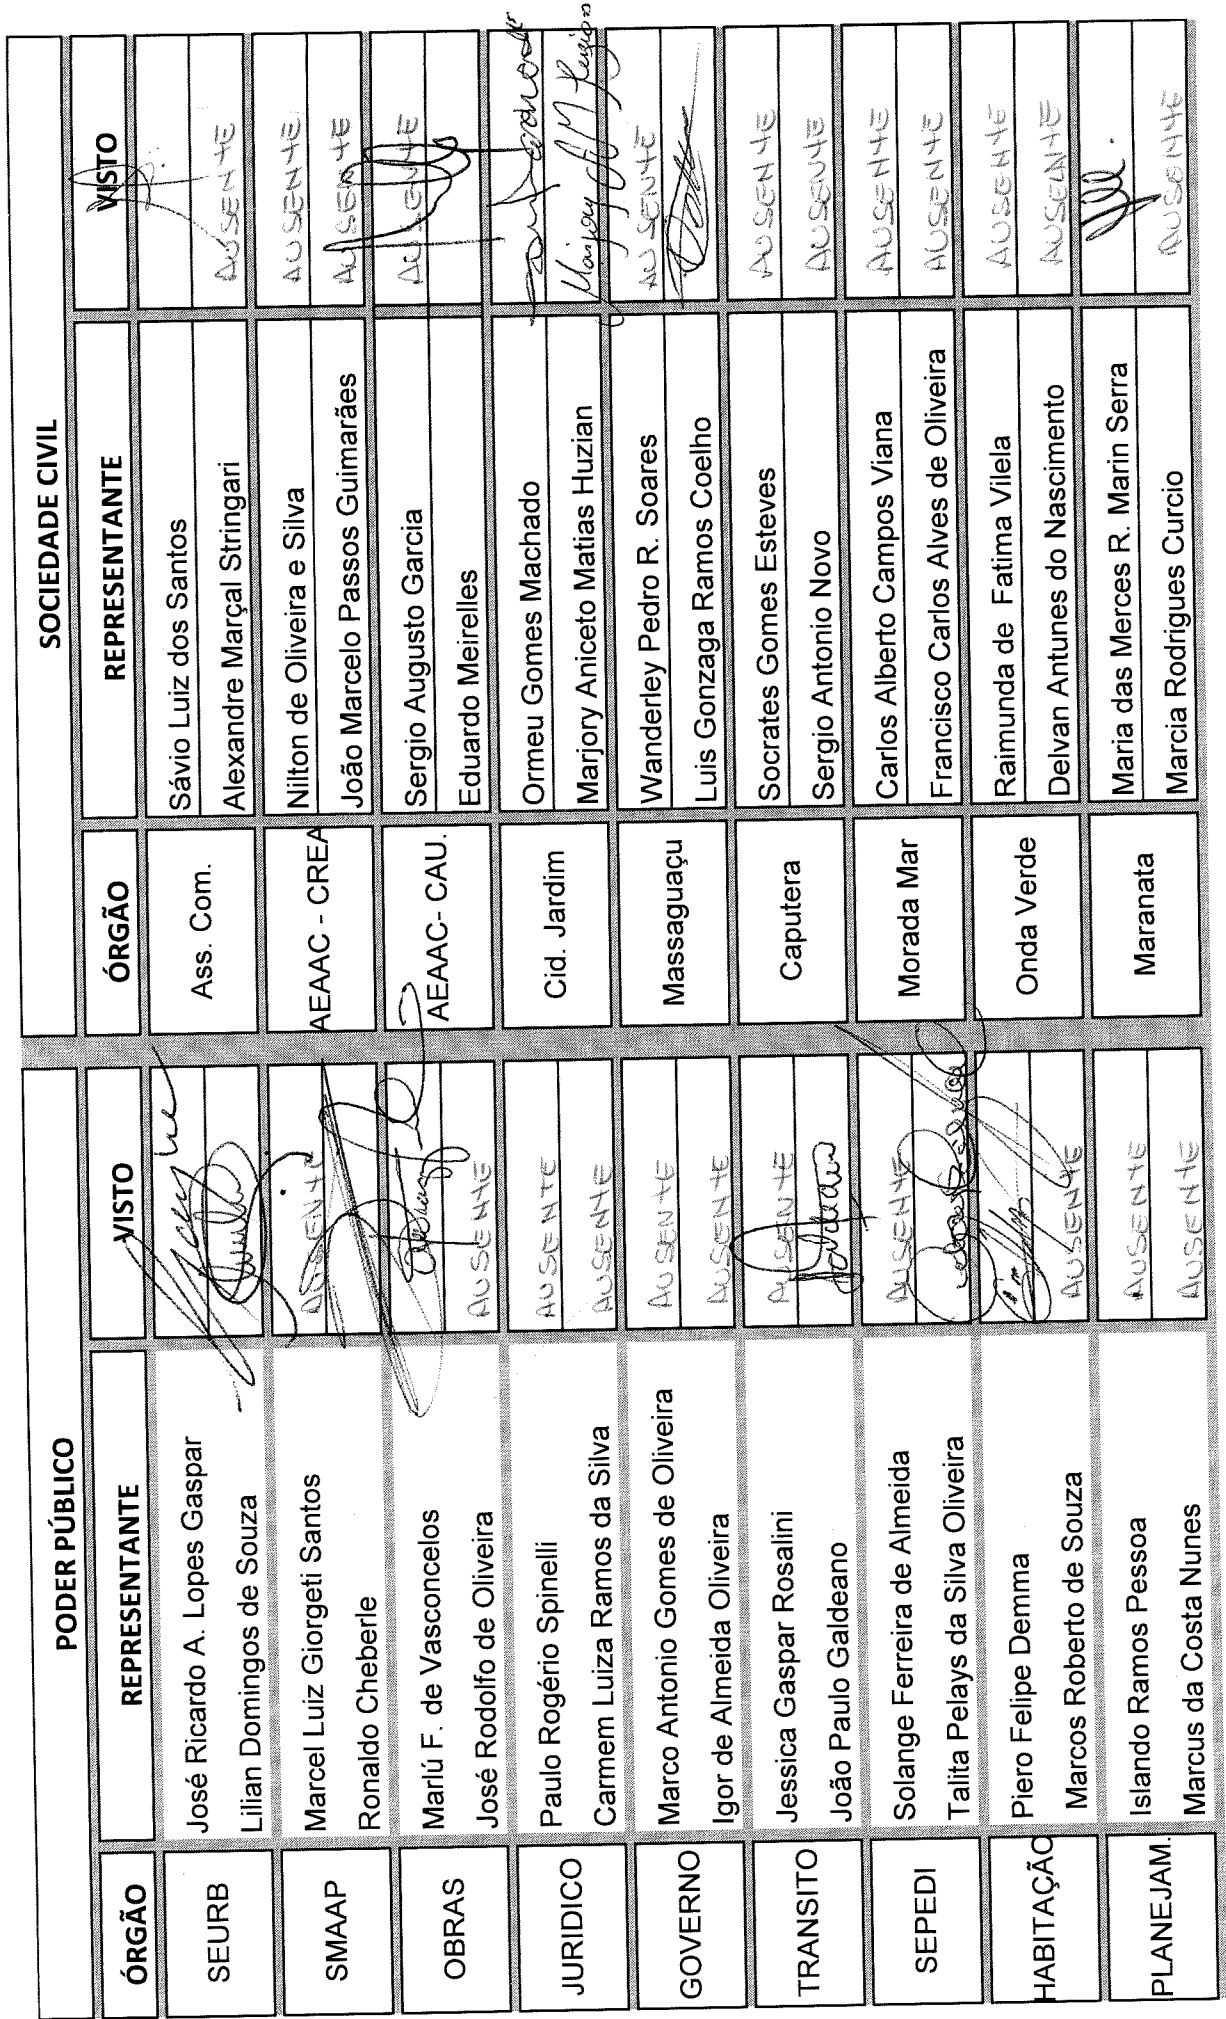 PODER PÚBLICO
SOCIEDADE CIVIL
ÓRGÃO REPRESENTANTE VISTO ÓRGÃO REPRESENTANTE VISTO
SEURB José Ricardo A. Lopes Gaspar Ass. Com. Sávio Luiz dos Santos
Lilian Domingos de Souza Alexandre Marçal Stringari AUSENTE
SMAAP Marcel Luiz Giorgeti Santos AUSENTE AEAAC - CREA Nilton de Oliveira e Silva AUSENTE
Ronaldo Cheberle João Marcelo Passos Guimarães AUSENTE
OBRAS Marlú F. de Vasconcelos AEAAC- CAU. Sergio Augusto Garcia AUSENTE
José Rodolfo de Oliveira AUSENTE Eduardo Meirelles
JURIDICO Paulo Rogério Spinelli AUSENTE Cid. Jardim Ormeu Gomes Machado
Carmem Luiza Ramos da Silva AUSENTE Marjory Aniceto Matias Huzian
GOVERNO Marco Antonio Gomes de Oliveira AUSENTE Massaguaçu Wanderley Pedro R. Soares AUSENTE
Igor de Almeida Oliveira AUSENTE Luis Gonzaga Ramos Coelho
TRANSITO Jessica Gaspar Rosalini AUSENTE Caputera Socrates Gomes Esteves AUSENTE
João Paulo Galdeano Sergio Antonio Novo AUSENTE
SEPEDI Solange Ferreira de Almeida AUSENTE Morada Mar Carlos Alberto Campos Viana AUSENTE
Talita Pelays da Silva Oliveira Francisco Carlos Alves de Oliveira AUSENTE
HABITAÇÃO Piero Felipe Demma Onda Verde Raimunda de Fatima Vilela AUSENTE
Marcos Roberto de Souza AUSENTE Delvan Antunes do Nascimento AUSENTE
PLANEJAM. Islando Ramos Pessoa AUSENTE Maranata Maria das Merces R. Marin Serra
Marcus da Costa Nunes AUSENTE Marcia Rodrigues Curcio AUSENTE